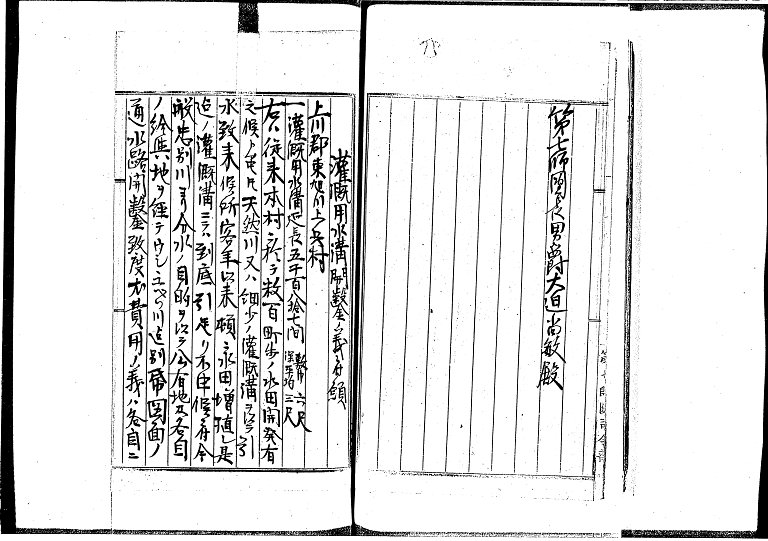 第七師團長男爵大迫尚敏殿
灌漑用水溝開鑿ノ義ニ付願
上川郡東旭川上兵村
一灌漑用水溝延長五千百拾七間 敷巾六尺 深平均三尺
右ハ従来本村ニ於テ数百町歩ノ水田開発有
之候ト雖モ天然川又ハ細少ノ灌漑溝ヲ以テ引
水致来候所客年以来頓ニ水田増殖シ是
迄ノ灌漑溝ニテハ到底引足リ不申候ニ付今
般忠別川ヨリ分水ノ目的ヲ以テ公有地及各自
ノ給與地ヲ経テウシュベツ川迄別帋図面ノ
通水路開鑿致度尤費用ノ義ハ各自ニ